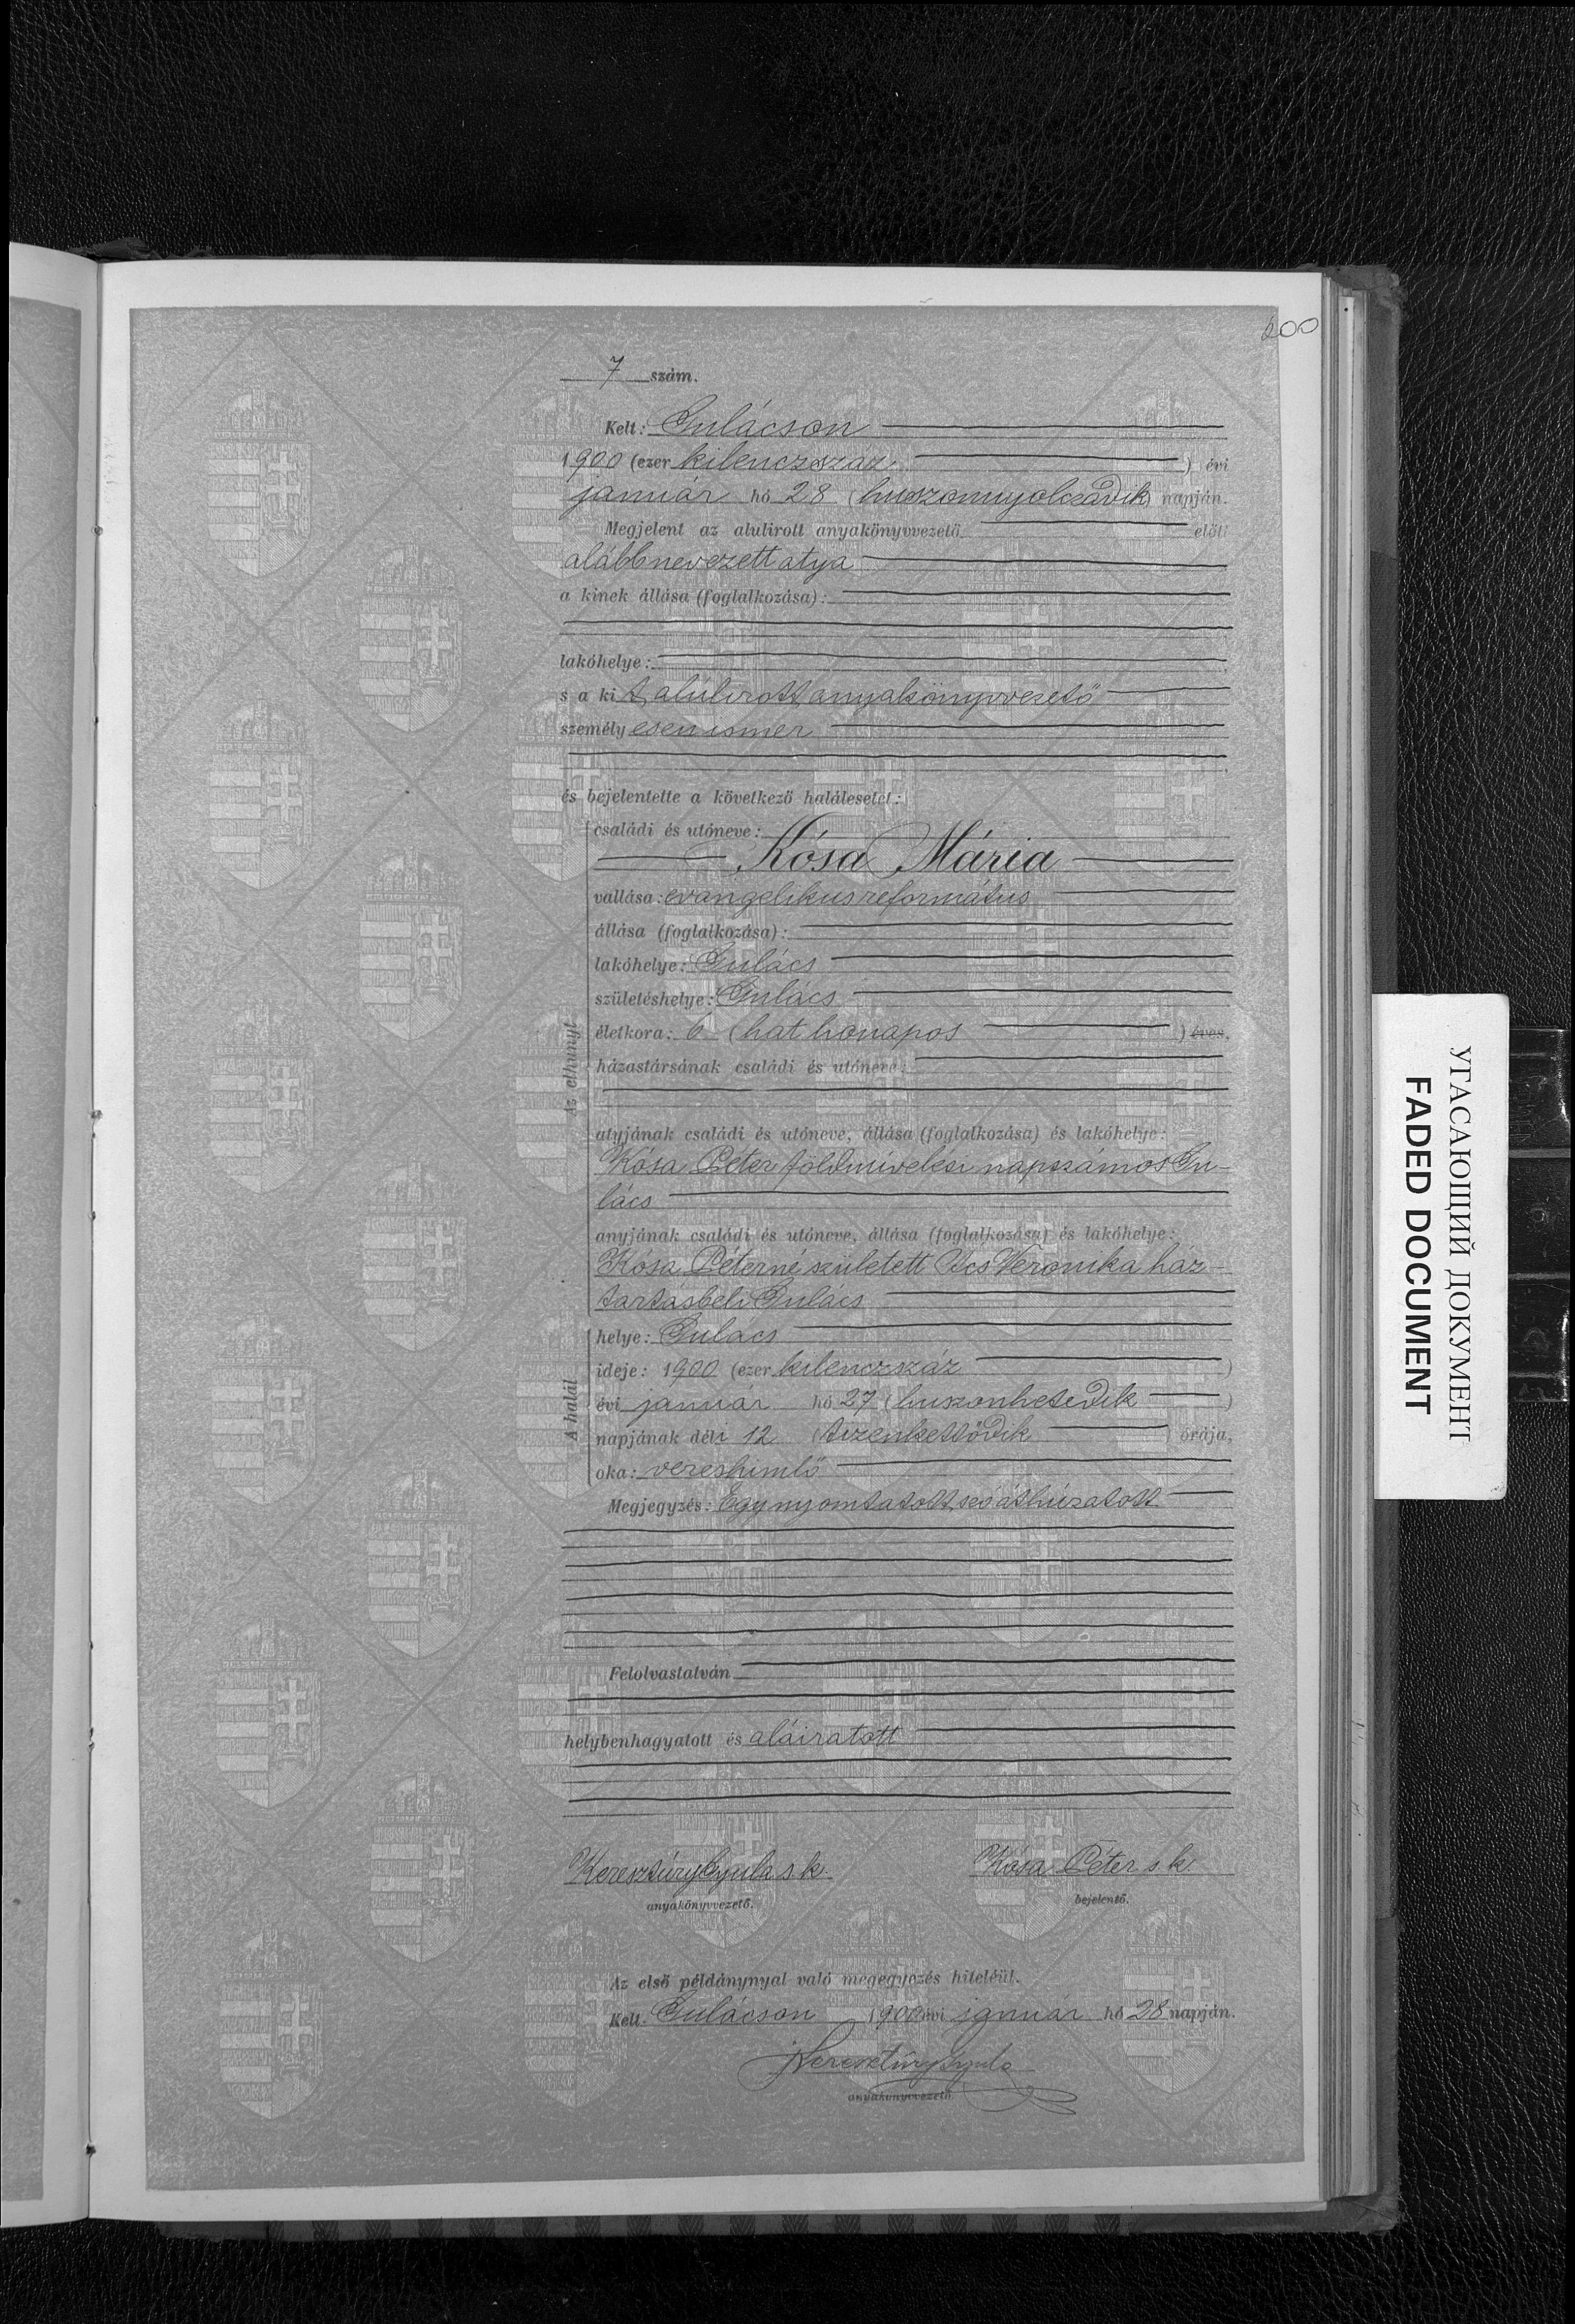 200
7 szám.
Kelt: Gulácson
1900 (ezer kilenczszáz) évi
január hó 28 (huszonnyolczadik) napján.
Megjelent az alulirott anyakönyvvezető előtt
alábbnevezett atya
a kinek állása (foglalkozása):
lakóhelye:
s a kit alúlirott anyakönyvvezető
személyesen ismer
és bejelentette a következő halálesetet:
családi és utóneve:
Kósa Mária
vallása: evangelikus református
állása (foglalkozása):
lakóhelye: Gulács
születéshelye: Gulács
életkora: 6 (hat hónapos) éves,
házastársának családi és utóneve:
Az elhunyt
atyjának családi és utóneve, állása (foglalkozása) és lakóhelye:
Kósa Péter földmívelési napszámos Gu-
lács
anyjának családi és utóneve, állása (foglalkozása) és lakóhelye:
Kósa Péterné született Veronika ház-
tartásbeli Gulács
A halál
helye: Gulács
ideje: 1900 (ezer kilenczszáz)
évi január hó 27 (huszonhetedik)
napjának déli 12 (tizenkettődik) órája,
oka: vereshimlő
Megjegyzés: Egy nyomtatott szó áthúzatott
Felolvastatván
helybenhagyatott és aláiratott
Keresztúry Gyula s.k.
anyakönyvvezető.
Kósa Péter s.k.
bejelentő.
Az első példánynyal való megegyezés hiteléül.
Kelt. Gulácson 1900 évi január hó 28 napján.
Keresztúry Gyula
anyakönyvvezető.
УГАСАЮЩИЙ ДОКУМЕНТ
FADED DOCUMENT